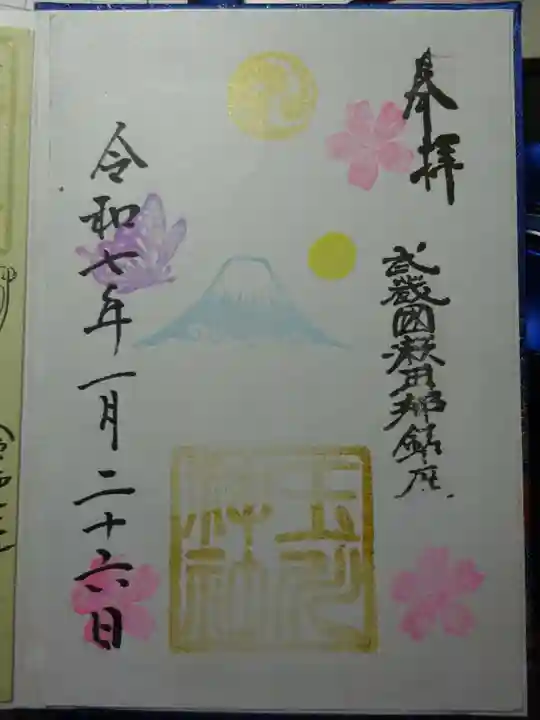 奉拝
武蔵國郡鎮座
神社
令和七年一月二十六日